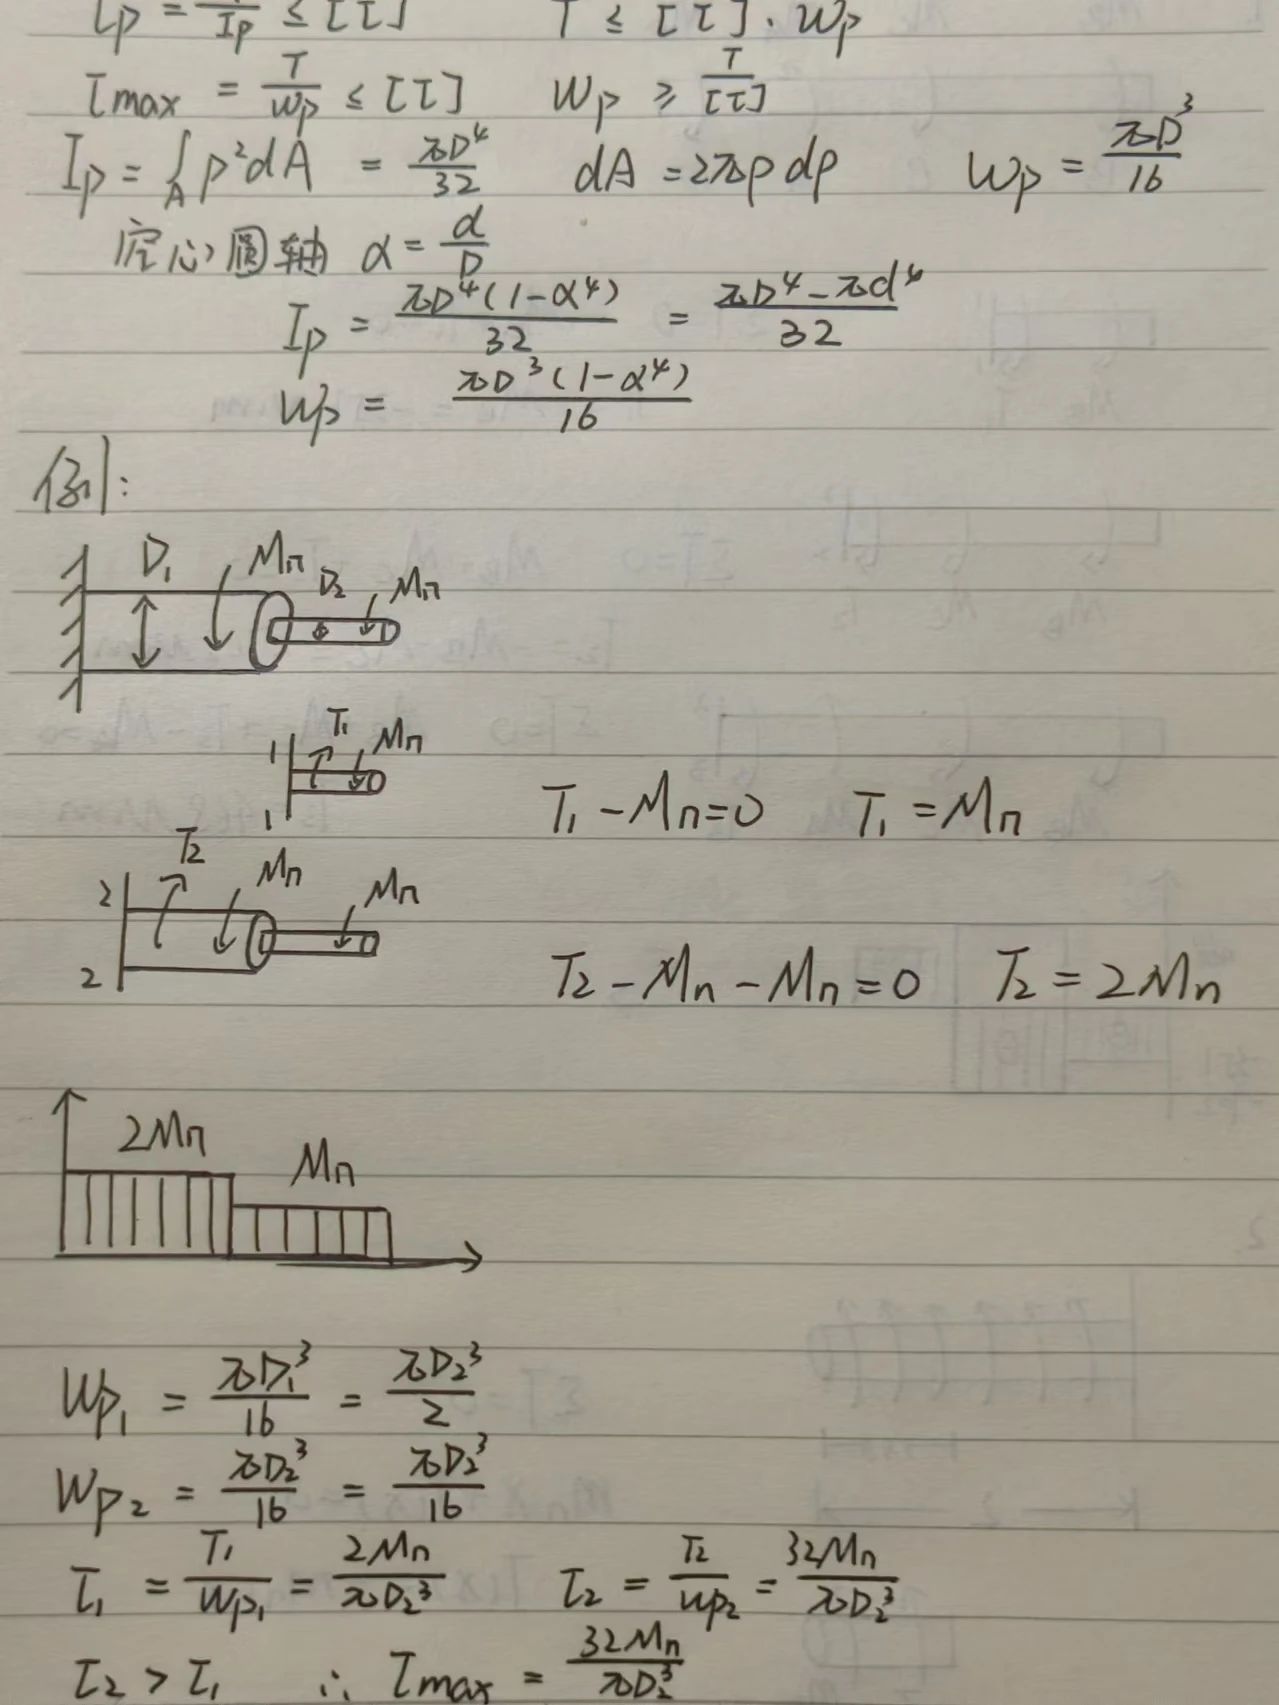 τρ = T/Iρ ≤ [τ]    T ≤ [τ]·Wp
τmax = T/Wp ≤ [τ]    Wp ≥ T/[τ]
Ip = ∫A ρ²dA = πD⁴/32    dA = 2πρdρ    Wp = πD³/16
空心圆轴 α = d/D
Ip = πD⁴(1-α⁴)/32 = πD⁴-πd⁴/32
Wp = πD³(1-α⁴)/16
例:
D₁ Mn D₂ Mn
1 T₁ Mn
1
T₁-Mn=0    T₁=Mn
T₂
2 Mn Mn
2
T₂-Mn-Mn=0    T₂=2Mn
2Mn Mn
Wp₁ = πD₁³/16 = πD₂³/2
Wp₂ = πD₂³/16 = πD₂³/16
τ₁ = T₁/Wp₁ = 2Mn/πD₂³    τ₂ = T₂/Wp₂ = 32Mn/πD₂³
τ₂>τ₁    ∴ τmax = 32Mn/πD₂³